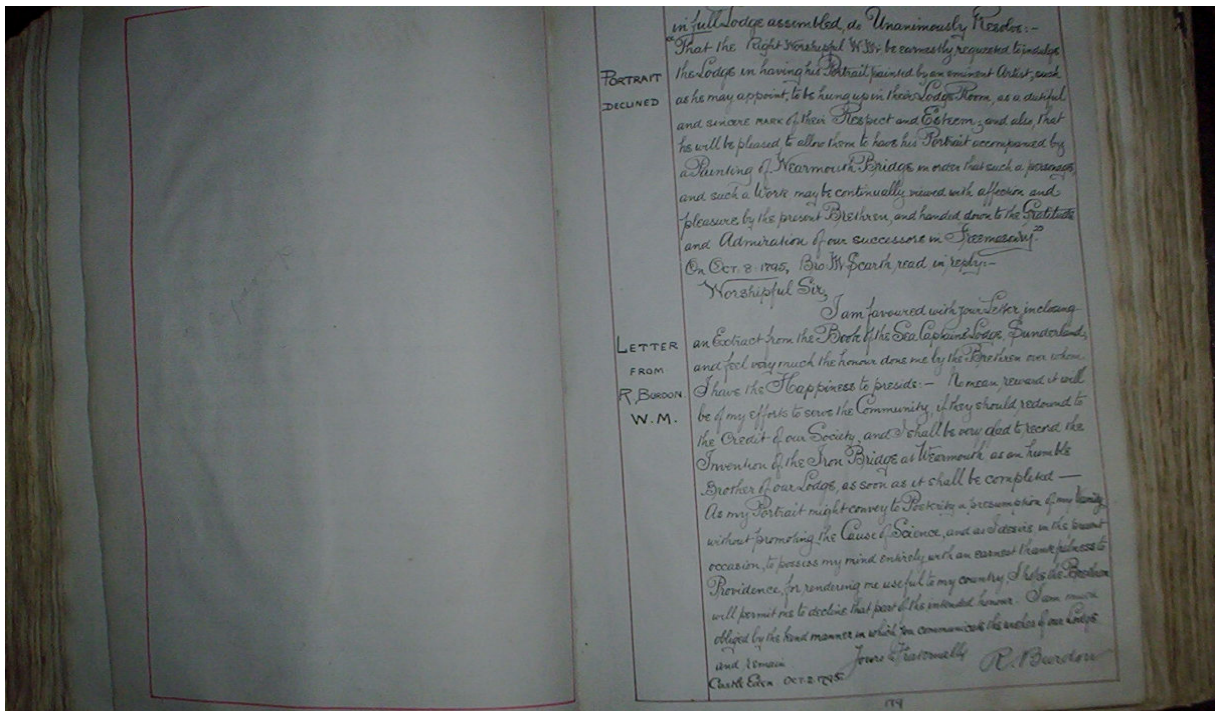 in full Lodge assembled, do Unanimously Resolve:-
"That the Right Worshipful W.M. be earnestly requested to indulge
the Lodge in having his Portrait painted by an eminent Artist, such
as he may appoint, to be hung up in their Lodge Room, as a dutiful
and sincere mark of their Respect and Esteem; and also, that
he will be pleased to allow them to have his Portrait accompanied by
a Painting of Wearmouth Bridge in order that such a personage,
and such a Work may be continually viewed with affection and
pleasure by the present Brethren, and handed down to the Gratitude
and Admiration of our successors in Freemasonry."
PORTRAIT
DECLINED
On Oct. 8. 1795, Bro. W. Scarth, read in reply:-
Worshipful Sir,
I am favoured with your Letter, inclosing
an Extract from the Book of the Sea Captains Lodge, Sunderland,
and feel very much the honour done me by the Brethren over whom
I have the Happiness to preside:- No mean reward it will
be of my efforts to serve the Community, if they should redound to
the Credit of our Society, and I shall be very glad to record the
Invention of the Iron Bridge at Wearmouth as an humble
Brother of our Lodge, as soon as it shall be completed —
As my Portrait might convey to Posterity a presumption of my Vanity
without promoting the Cause of Science, and as I desire in the present
occasion, to possess my mind entirely with an earnest thankfulness to
Providence, for rendering me useful to my country, I hope the Brethren
will permit me to decline that part of the intended honour. I am much
obliged by the kind manner in which you communicate the wishes of our Lodge
and remain Yours Fraternally R. Burdon
Castle Eden Oct. 2. 1795.
LETTER
FROM
R. BURDON
W.M.